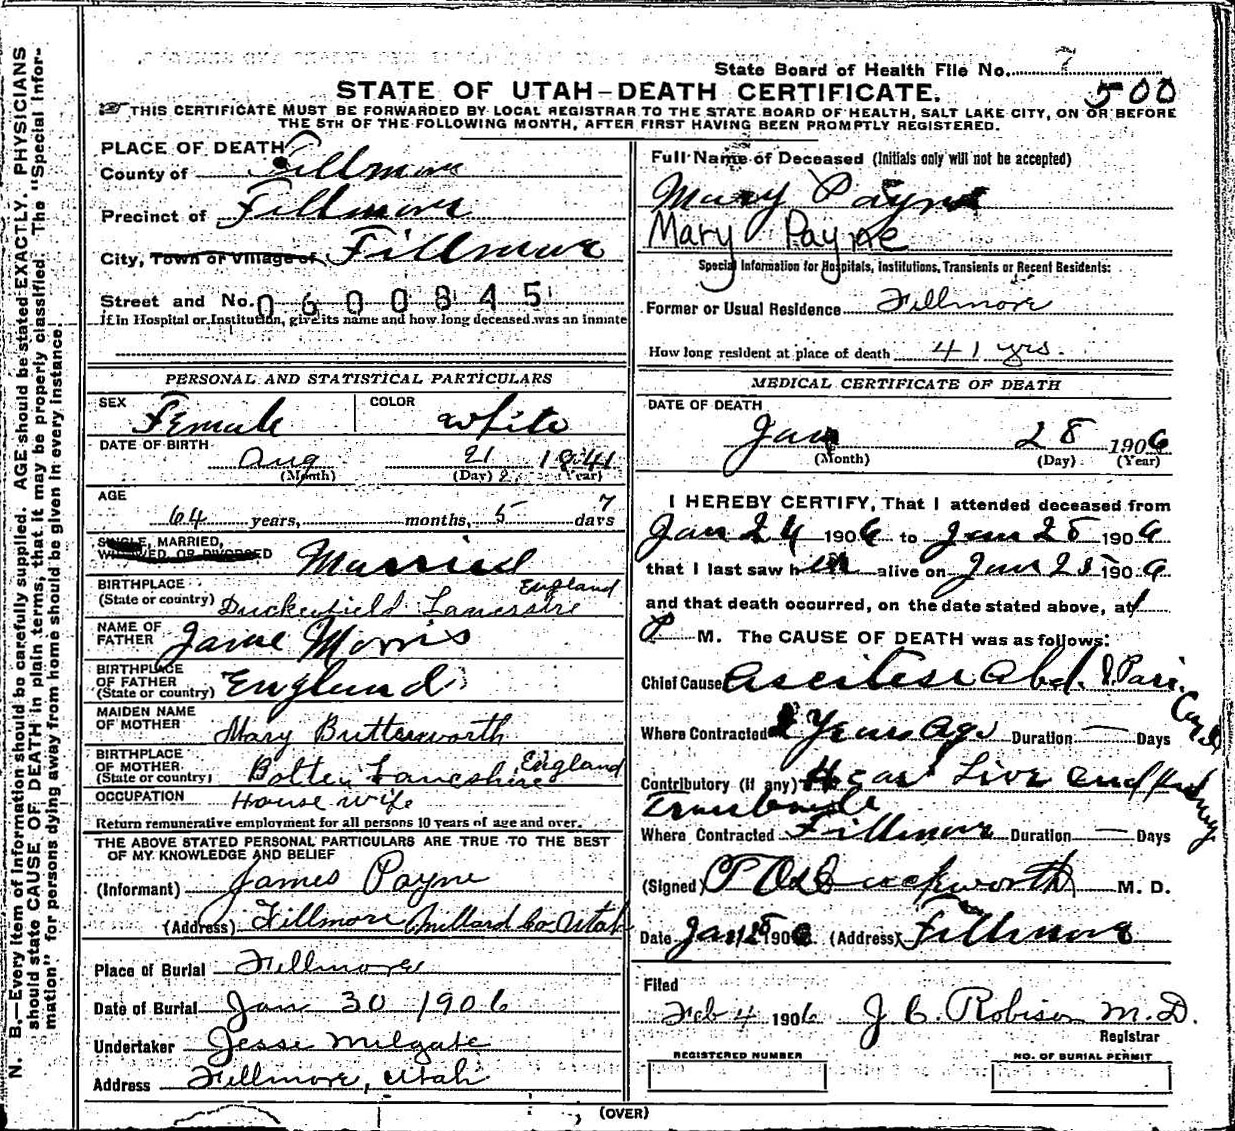 State Board of Health File No. 7
500
STATE OF UTAH–DEATH CERTIFICATE.
THIS CERTIFICATE MUST BE FORWARDED BY LOCAL REGISTRAR TO THE STATE BOARD OF HEALTH, SALT LAKE CITY, ON OR BEFORE
THE 5TH OF THE FOLLOWING MONTH, AFTER FIRST HAVING BEEN PROMPTLY REGISTERED.
N. B.—Every item of information should be carefully supplied. AGE should be stated EXACTLY. PHYSICIANS
should state CAUSE OF DEATH in plain terms, that it may be properly classified. The "Special Infor-
mation" for persons dying away from home should be given in every instance.
PLACE OF DEATH
County of Fillmore
Precinct of Fillmore
City, Town or Village of, Fillmore
Street and No. 0600845
If in Hospital or Institution, give its name and how long deceased was an inmate
PERSONAL AND STATISTICAL PARTICULARS
SEX Female COLOR white
DATE OF BIRTH Aug 21 1841
(Month) (Day) (Year)
AGE
64 years, months, 5 7 days
SINGLE, MARRIED,
WIDOWED, OR DIVORCED Married
BIRTHPLACE England
(State or country) Duckenfield
NAME OF
FATHER Jame Morris
BIRTHPLACE
OF FATHER
(State or country) England
MAIDEN NAME
OF MOTHER Mary Butterworth
BIRTHPLACE
OF MOTHER England
(State or country) Lancshire
OCCUPATION House wife
Return remunerative employment for all persons 10 years of age and over.
THE ABOVE STATED PERSONAL PARTICULARS ARE TRUE TO THE BEST
OF MY KNOWLEDGE AND BELIEF
(Informant) James Payne
(Address) Fillmore Millard Co Utah
Place of Burial Fillmore
Date of Burial Jan 30 1906
Undertaker Jesse Milgate
Address Fillmore, Utah
Full Name of Deceased (Initials only will not be accepted)
Mary Payne
Mary Payne
Special Information for Hospitals, Institutions, Transients or Recent Residents:
Former or Usual Residence Fillmore
How long resident at place of death 41 yrs.
MEDICAL CERTIFICATE OF DEATH
DATE OF DEATH
Jan 28 1906
(Month) (Day) (Year)
I HEREBY CERTIFY, That I attended deceased from
Jan 24 1906 to Jan 28 1906
that I last saw h alive on Jan 1906
and that death occurred, on the date stated above, at
P M. The CAUSE OF DEATH was as follows:
Chief Cause Abd.
Where Contracted Years Ago Duration — Days
Contributory (if any) Live and Kidney
Where Contracted Fillmore Duration — Days
(Signed) Duckworth M. D.
Date Jan 1906. (Address) Fillmore
Filed
Feb 4 1906 J C Robison M.D.
Registrar
REGISTERED NUMBER NO. OF BURIAL PERMIT
(OVER)